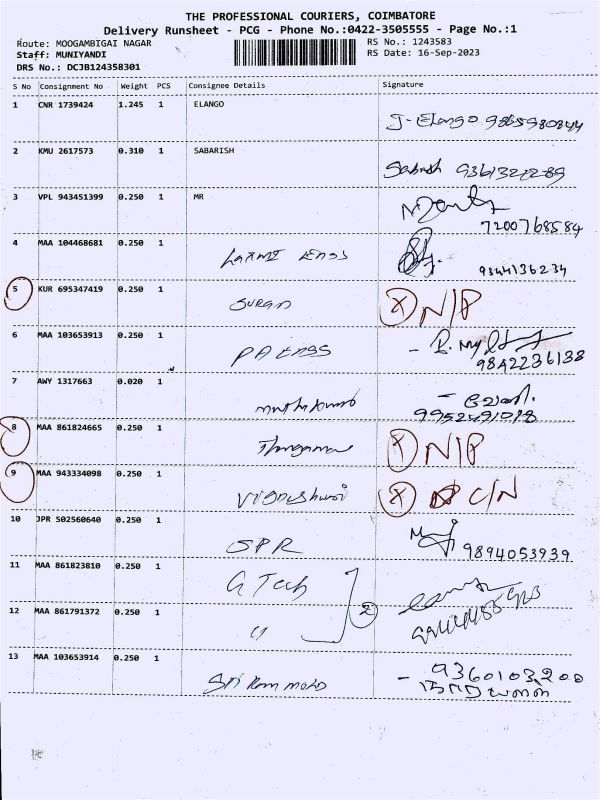 THE PROFESSIONAL COURIERS, COIMBATORE
Delivery Runsheet - PCG - Phone No.:0422-3505555 - Page No.:1
Route: MOOGAMBIGAI NAGAR RS No.: 1243583
Staff: MUNIYANDI RS Date: 16-Sep-2023
DRS No.: DCJB124358301
S No Consignment No Weight PCS Consignee Details Signature
1 CNR 1739424 1.245 1 ELANGO
J- Elango 9865980844
2 KMU 2617573 0.310 1 SABARISH
Sabarish
3 VPL 943451399 0.250 1 MR
7200768584
4 MAA 104468681 0.250 1
Laxmi Engs 9344136234
5 KUR 695347419 0.250 1
X N/P
6 MAA 103653913 0.250 1
PA Engs 9842236138
7 AWY 1317663 0.020 1
8 MAA 861824665 0.250 1
X N/P
9 MAA 943334098 0.250 1
X C/N
10 JPR 502560640 0.250 1
SPR 9894053939
11 MAA 861823810 0.250 1
G Tech
2
12 MAA 861791372 0.250 1
"
13 MAA 103653914 0.250 1
9360103200